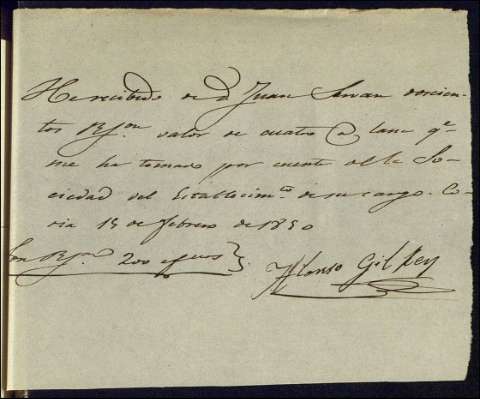 He recibido de d Juan Servan doscien-
tos Rs. on valor de cuatro @ lana qe.
me ha tomado por cuenta de la So-
ciedad del Establecimto. de su cargo. Co-
ria 15 de Febrero de 1850
Son Rs. on 200
Alonso Gil Rey